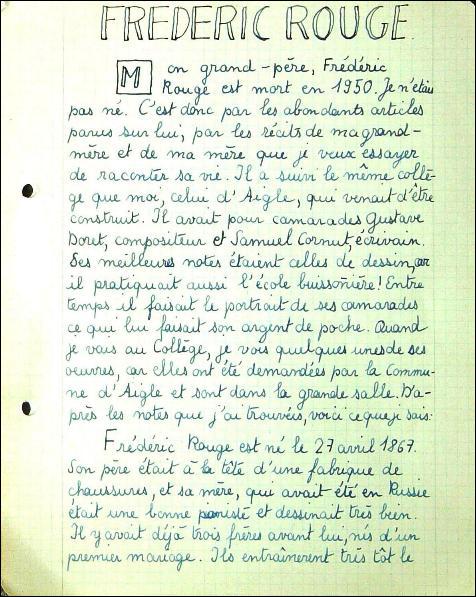 FREDERIC ROUGE
Mon grand-père, Frédéric
Rouge est mort en 1950. Je n'étais
pas né. C'est donc par les abondants articles
parus sur lui, par les récits de ma grand-
mère et de ma mère que je veux essayer
de raconter sa vie. Il a suivi le même collè-
ge que moi, celui d'Aigle, qui venait d'être
construit. Il avait pour camarades Gustave
Doret, compositeur et Samuel Cornut, écrivain.
Ses meilleures notes étaient celles de dessin, car
il pratiquait aussi l'école buissonière! Entre
temps il faisait le portrait de ses camarades
ce qui lui faisait son argent de poche. Quand
je vais au Collège, je vois quelques unes de ses
oeuvres, car elles ont été demandées par la Commu-
ne d'Aigle et sont dans la grande salle. D'a-
près les notes que j'ai trouvées, voici ce que je sais:
Frédéric Rouge est né le 27 avril 1867.
Son père était à la tête d'une fabrique de
chaussures, et sa mère, qui avait été en Russie
était une bonne pianiste et dessinait très bien.
Il y avait déjà trois frères avant lui, nés d'un
premier mariage. Ils entraînerent très tôt le